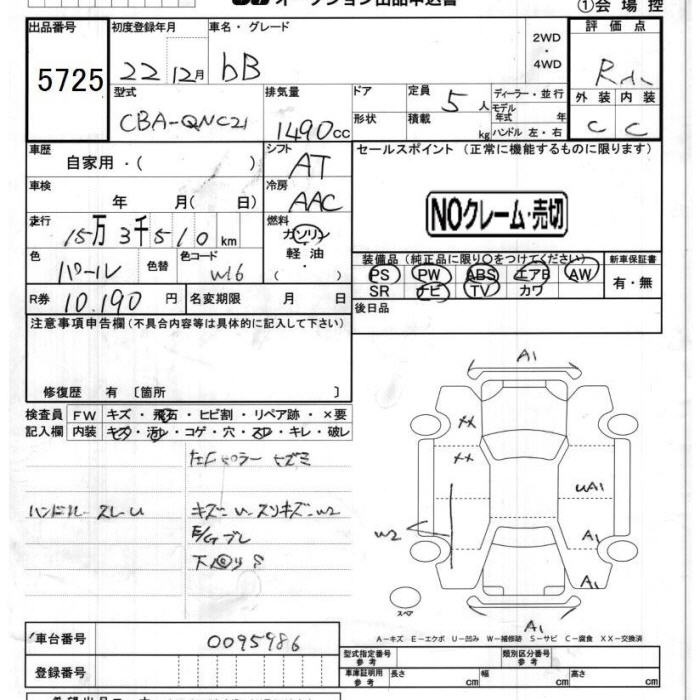 オークション出品申込書 ①会場控
出品番号 初度登録年月 車名・グレード 2WD・4WD 評価点
5725 22 12月 bB
外装 内装
C C
型式 排気量 ドア 定員 5人 ディーラー・並行
CBA-QNC21 1490cc 形状 積載 kg モデル年式 年 ハンドル 左・右
車歴 自家用・( ) シフト AT セールスポイント (正常に機能するものに限ります)
車検 年 月( 日) 冷房 AAC
NOクレーム・売切
走行 15万3千510km 燃料 ガソリン・軽油・( )
色 パール 色替 色コード W16
装備品 (純正品に限り○をつけてください) 新車保証書
PS PW ABS エアB AW 有・無
SR ナビ TV カワ
R券 10,190円 名変期限 月 日 後日品
注意事項申告欄(不具合内容等は具体的に記入して下さい)
修復歴 有 〔箇所 〕
検査員 FW キズ・飛石・ヒビ割・リペア跡・×要
記入欄 内装 キズ・汚レ・コゲ・穴・スレ・キレ・破レ
ハンドル スレ
キズ
E/Gブレ
A1
XX
XX
UA1
W2
A1
A1
スペア
A1
A-キズ E-エクボ U-凹み W-補修跡 S-サビ C-腐食 XX-交換済
車台番号 0095986
型式指定番号 参考 類別区分番号 参考
登録番号
車庫証明用 参考 長さ cm 幅 cm 高さ cm